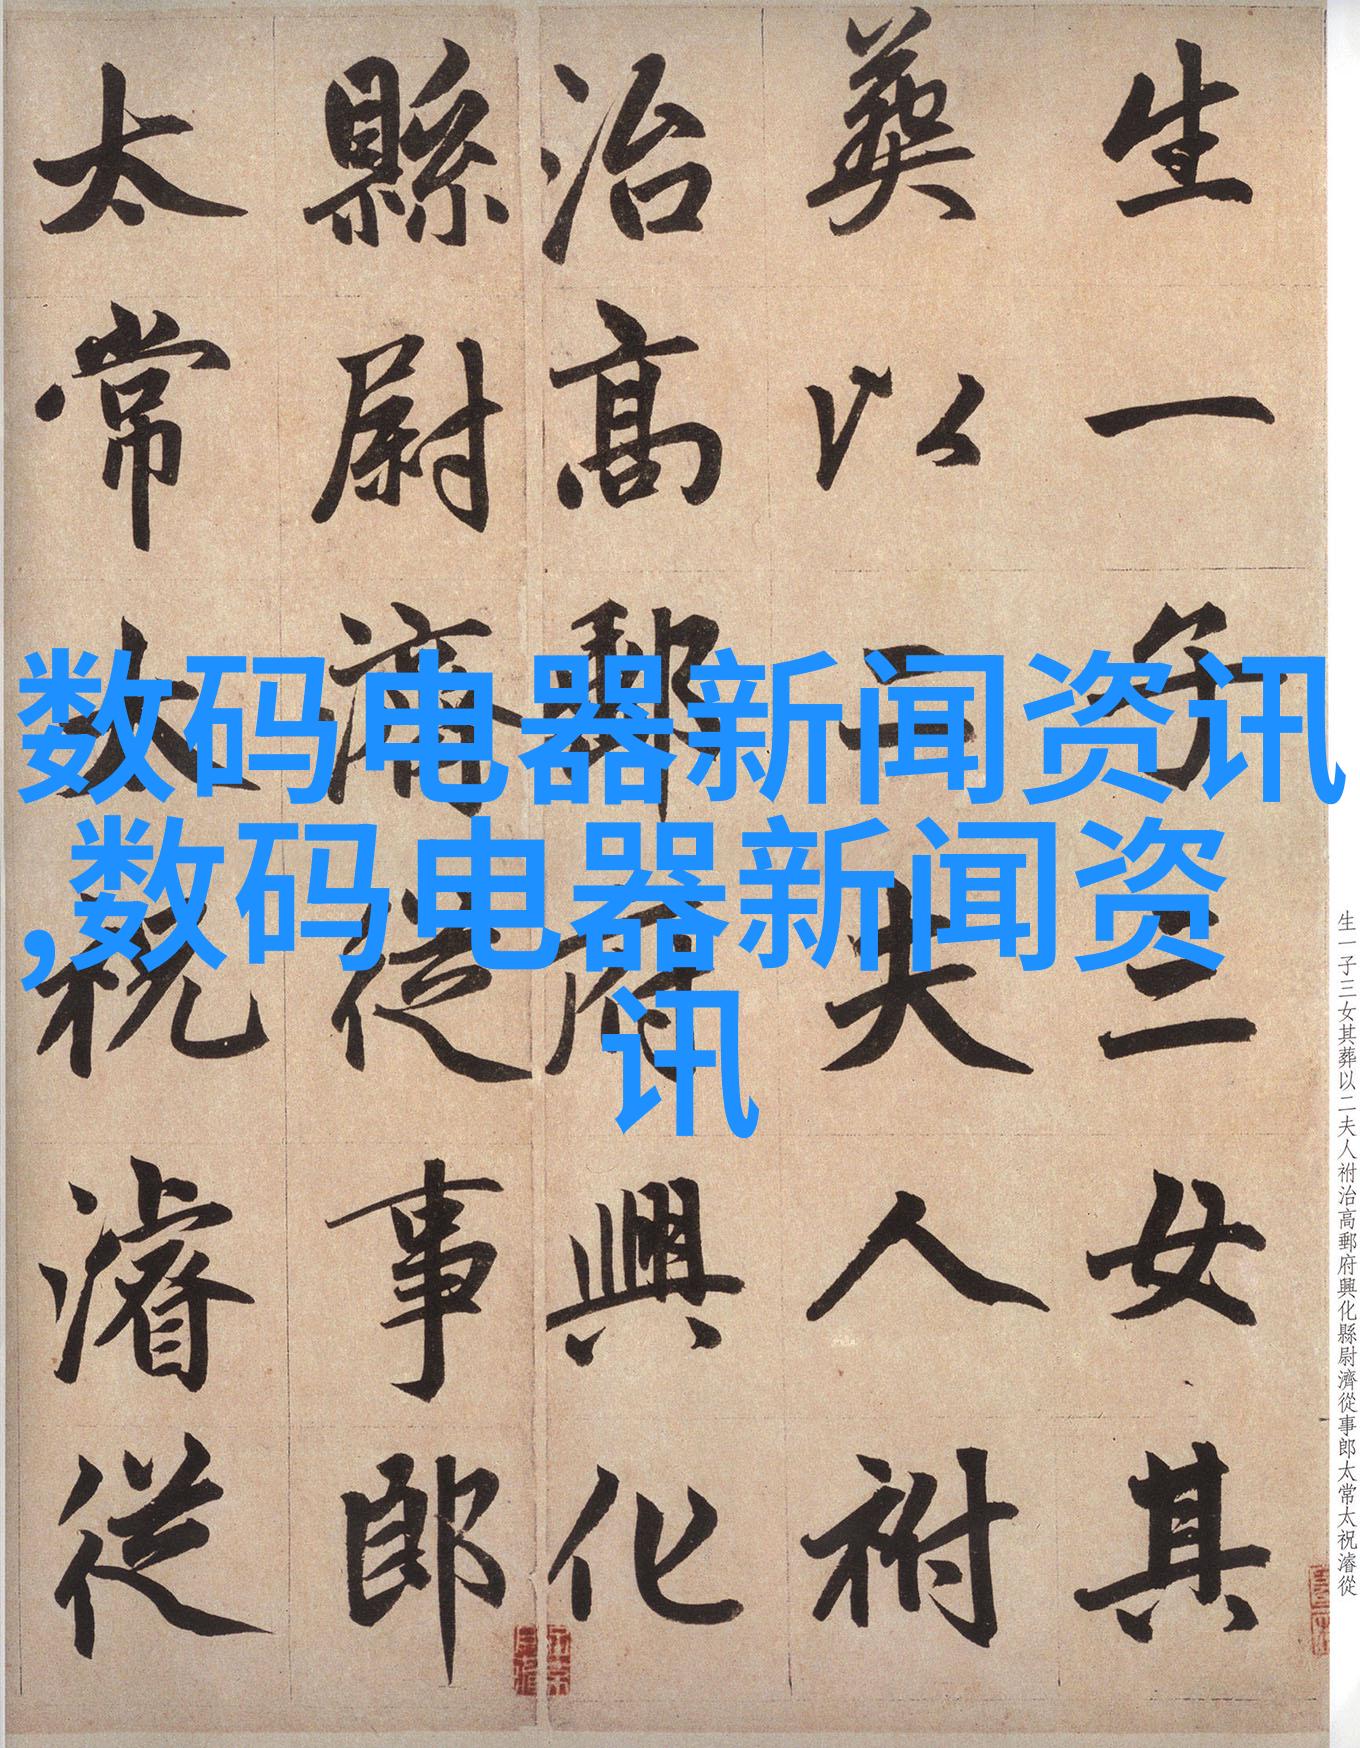 生一子三女其
葬以二夫人祔
治高郵府興化
縣尉濟從事郎
太常太祝濬從
数码电器新闻资讯
,数码电器新闻资
讯
生一子三女其葬以二夫人祔治高郵府興化縣尉濟從事郎太常太祝濬從